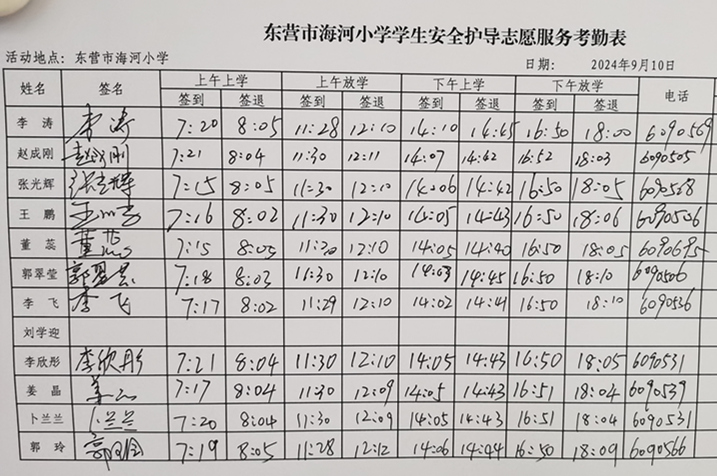 东营市海河小学学生安全护导志愿服务考勤表
活动地点：东营市海河小学 日期： 2024年9月10日
姓名 签名 上午上学 上午放学 下午上学 下午放学 电话
签到 签退 签到 签退 签到 签退 签到 签退
李涛 李涛 7:20 8:05 11:28 12:10 14:10 14:45 16:50 18:00 6090569
赵成刚 赵成刚 7:21 8:04 11:30 12:11 14:07 14:42 16:52 18:03 6090505
张光辉 张光辉 7:15 8:05 11:30 12:10 14:06 14:42 16:50 18:05 6090528
王鹏 7:16 8:02 11:30 12:10 14:05 14:43 16:50 18:06 6090506
董蕊 董蕊 7:15 8:05 11:30 12:10 14:05 14:40 16:50 18:05 6090695
郭翠莹 郭翠莹 7:18 8:03 11:30 12:10 14:03 14:45 16:50 18:10 6090506
李飞 李飞 7:17 8:02 11:29 12:10 14:02 14:41 16:50 18:10 6090536
刘学迎
李欣彤 李欣彤 7:21 8:04 11:30 12:10 14:05 14:43 16:50 18:05 6090531
姜晶 7:17 8:04 11:30 12:09 14:05 14:43 16:51 18:04 6090539
卜兰兰 卜兰兰 7:20 8:04 11:30 12:09 14:05 14:43 16:51 18:04 6090531
郭玲 7:19 8:05 11:28 12:12 14:06 14:44 16:50 18:09 6090566